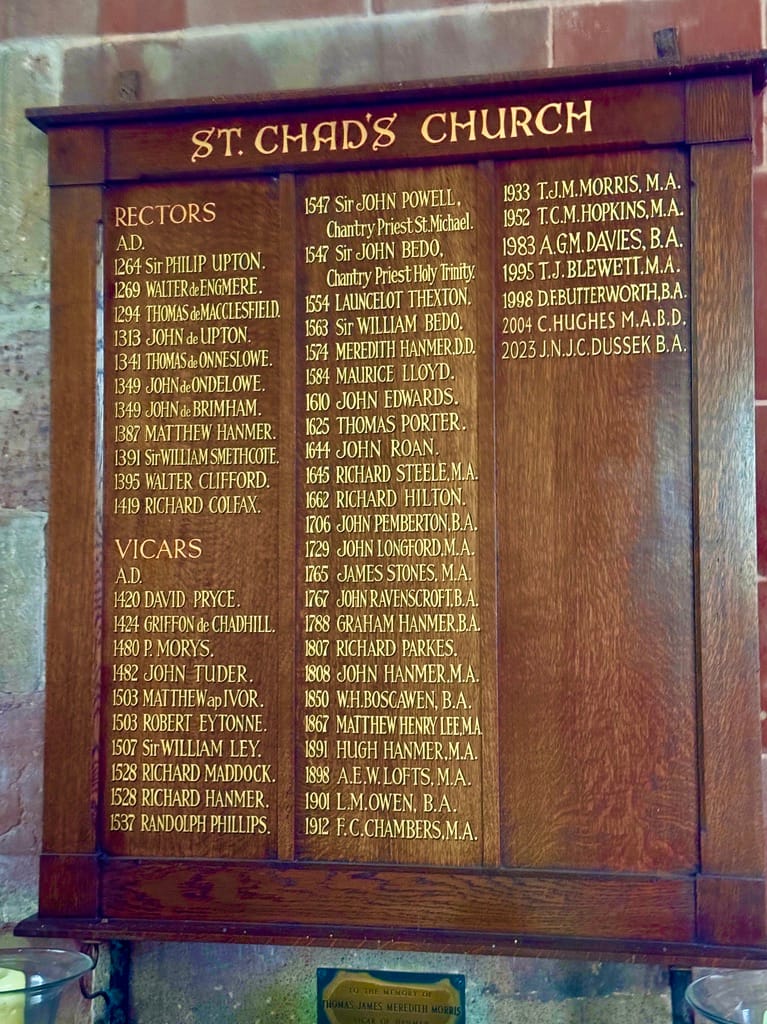 ST. CHAD'S CHURCH
RECTORS
A.D.
1264 Sir PHILIP UPTON.
1269 WALTER de ENGMERE.
1294 THOMAS de MACCLESFIELD.
1313 JOHN de UPTON.
1341 THOMAS de ONNESLOWE.
1349 JOHN de ONDELOWE.
1349 JOHN de BRIMHAM.
1387 MATTHEW HANMER.
1391 Sir WILLIAM SMETHCOTE.
1395 WALTER CLIFFORD.
1419 RICHARD COLFAX.
VICARS
A.D.
1420 DAVID PRYCE.
1424 GRIFFON de CHADHILL.
1480 P. MORYS.
1482 JOHN TUDER.
1503 MATTHEW ap IVOR.
1503 ROBERT EYTONNE.
1507 Sir WILLIAM LEY.
1528 RICHARD MADDOCK.
1528 RICHARD HANMER.
1537 RANDOLPH PHILLIPS.
1547 Sir JOHN POWELL,
Chantry Priest St. Michael.
1547 Sir JOHN BEDO,
Chantry Priest Holy Trinity.
1554 LAUNCELOT THEXTON.
1563 Sir WILLIAM BEDO.
1574 MEREDITH HANMER, D.D.
1584 MAURICE LLOYD.
1610 JOHN EDWARDS.
1625 THOMAS PORTER.
1644 JOHN ROAN.
1645 RICHARD STEELE, M.A.
1662 RICHARD HILTON.
1706 JOHN PEMBERTON, B.A.
1729 JOHN LONGFORD, M.A.
1765 JAMES STONES, M.A.
1767 JOHN RAVENSCROFT, B.A.
1788 GRAHAM HANMER, B.A.
1807 RICHARD PARKES.
1808 JOHN HANMER, M.A.
1850 W.H. BOSCAWEN, B.A.
1867 MATTHEW HENRY LEE, M.A
1891 HUGH HANMER, M.A.
1898 A.E.W. LOFTS, M.A.
1901 L.M. OWEN, B.A.
1912 F.C. CHAMBERS, M.A.
1933 T.J.M. MORRIS, M.A.
1952 T.C.M. HOPKINS, M.A.
1983 A.G.M. DAVIES, B.A.
1995 T.J. BLEWETT, M.A.
1998 D.F. BUTTERWORTH, B.A.
2004 C. HUGHES M.A. B.D.
2023 J.N.J.C. DUSSEK B.A.
TO THE MEMORY OF
THOMAS JAMES MEREDITH MORRIS
VICAR OF HANMER